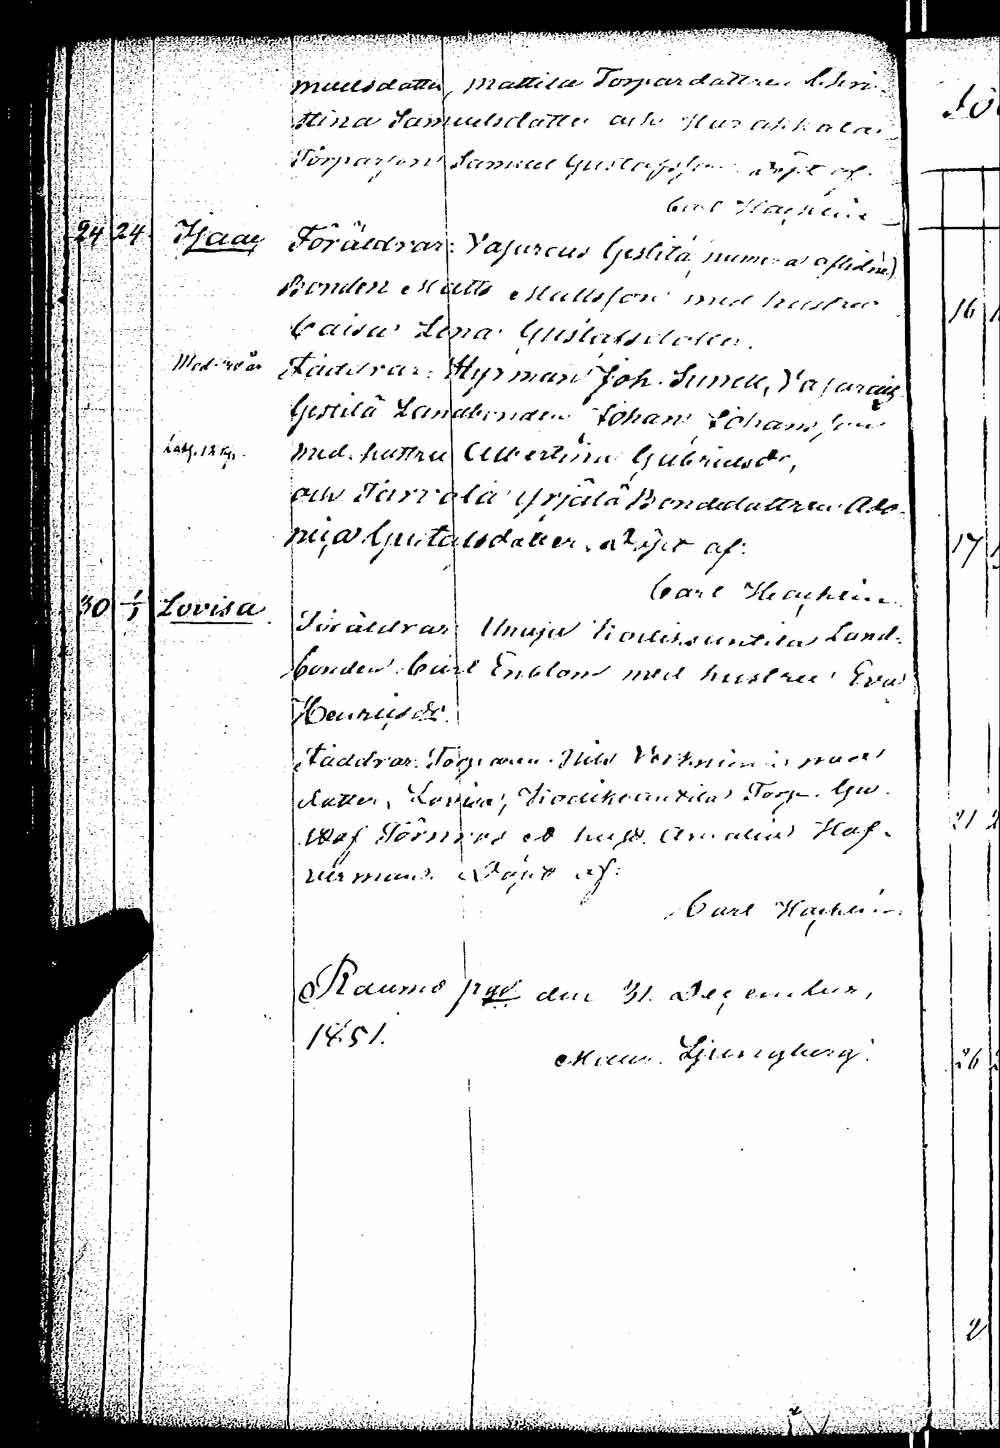 muelsdotter, Mattila Torpardottren Chri-
stina Samuelsdotter och Hurakkala
Torparson Samuel Gustafsson. Döpt af:
Carl Hacklin
24 24 Isaac Föräldrar: Vasarais Gestilä, numera aflidne)
Bonden Matts Mattsson med hustru
Caisa Lena Gustafsdotter.
Mod. 40 år Faddrar: Styrman Joh. Sunell, Vasarais
Gestilä Landbonden Johan Johansson
med hustru Albertina Gabrielsdr,
och Tarvola Yrjälä Bondedottren Ado-
Gustafsdotter. Döpt af:
Carl Hacklin
30 1/1 Lovisa
Föräldrar: Unaja Land-
bonden Carl Enblom med hustru Eva
Henricsdr.
Faddrar: Torparen Nils med
dotter Lovisa, Torp. Gu-
staf Törnroos o hust. Amalia Haf-
verman. Döpt af:
Carl Hacklin
Raumo pgd den 31 December,
1851.
Ljungberg.
Fö
16
17
21
26